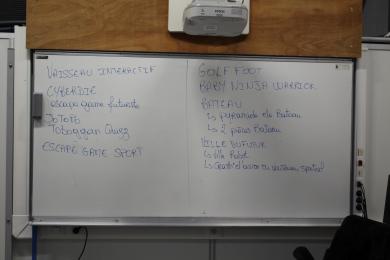 VAISSEAU INTERACTIF
CYBERDIE
escape game futuriste
JOTOPO
Toboggan Quizz
ESCAPE GAME SPORT
GOLF FOOT
BABY NINJA WARRIOR
BATEAU
↳ pyramide de Bateau
↳ 2 pôles Bateau
VILLE DU FUTUR
↳ Ville Robot
↳ Crash d'avion ou vaisseau spatial